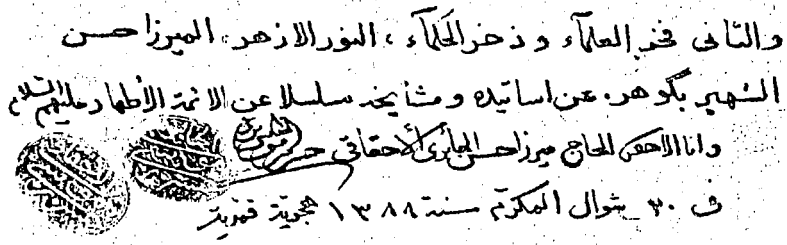 والثاني فخر العلمآء و ذخر الحكمآء ، النور الازهر ، الميرزا حسن
الشهير بگوهر ، عن اساتيده و مشايخه سلسلا عن الائمة الأطهار عليهم السلام
وانا الاحقر الحاج ميرزا حسن الحائرى الأحقاقى
فى ٣٠ شوال المكرم سنة ١٣٨٨ هجرية قمرية